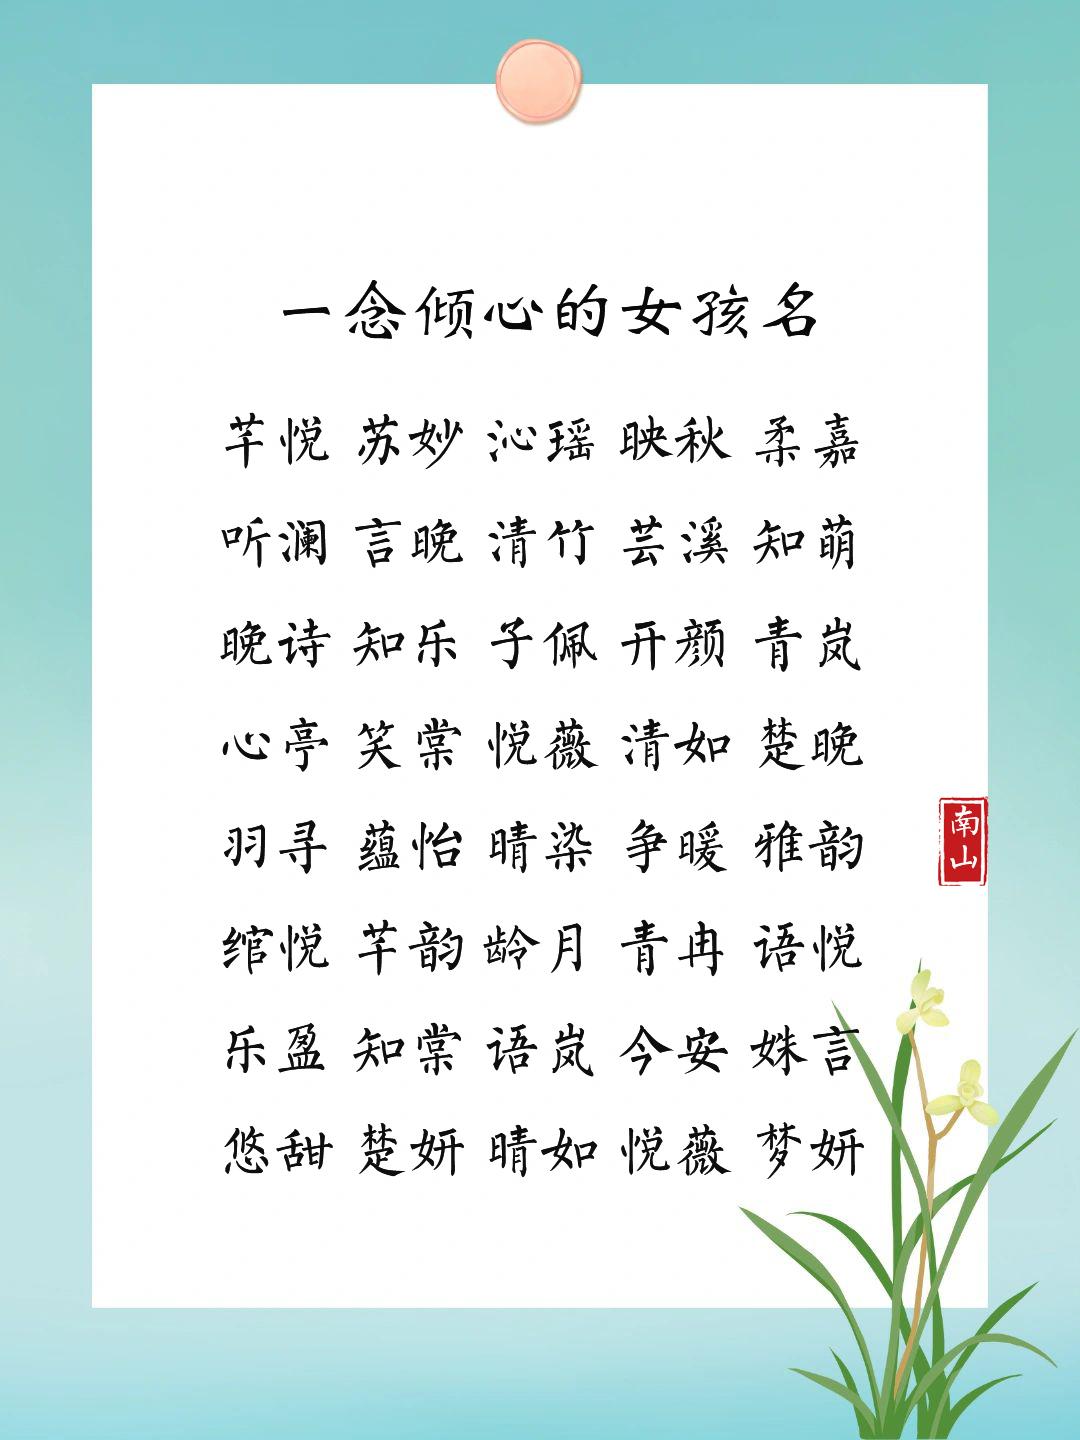 一念倾心的女孩名
芊悦 苏妙 沁瑶 映秋 柔嘉
听澜 言晚 清竹 芸溪 知萌
晚诗 知乐 子佩 开颜 青岚
心亭 笑棠 悦薇 清如 楚晚
羽寻 蕴怡 晴染 争暖 雅韵
南山
绾悦 芊韵 龄月 青冉 语悦
乐盈 知棠 语岚 今安 姝言
悠甜 楚妍 晴如 悦薇 梦妍